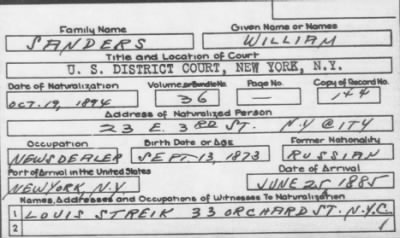 Family Name Given Name or Names
SANDERS WILLIAM
Title and Location of Court
U. S. DISTRICT COURT, NEW YORK, N.Y.
Date of Naturalization Volume or Bundle No. Page No. Copy of Record No.
OCT. 19, 1894 36 — 144
Address of Naturalized Person
23 E. 3RD ST. N.Y @ITY
Occupation Birth Date or Age Former Nationality
NEWSDEALER SEPT 13, 1873 RUSSIAN
Port of Arrival in the United States Date of Arrival
NEW YORK, N.Y. JUNE 25, 1885
Names, Addresses and Occupations of Witnesses To Naturalization
1 LOUIS STREIK 33 ORCHARD ST. N.Y.C.
2